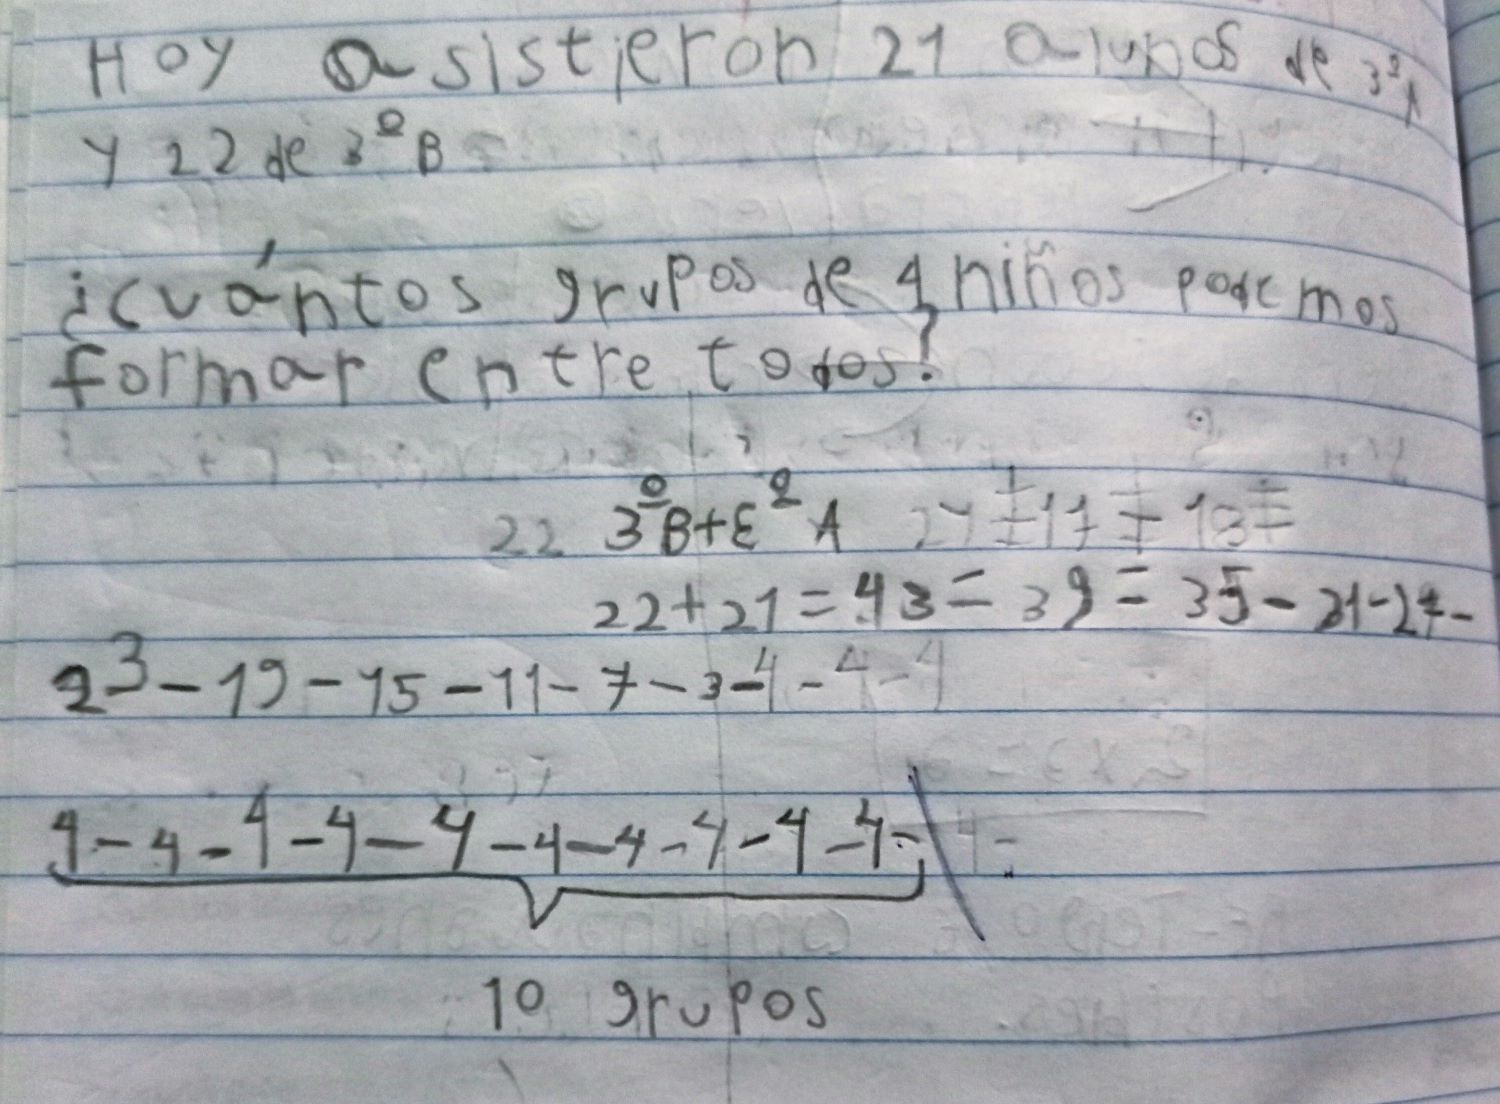 Hoy asistieron 21 alunos de 3º A
y 22 de 3º B
¿cuántos grupos de 4 niños podemos
formar entre todos?
22 3º B+Eº A
22+21=43=39=35-31-27-
23-19-15-11-7-3-4-4-4
4-4-4-4-4-4-4-4-4-4- 4-
10 grupos